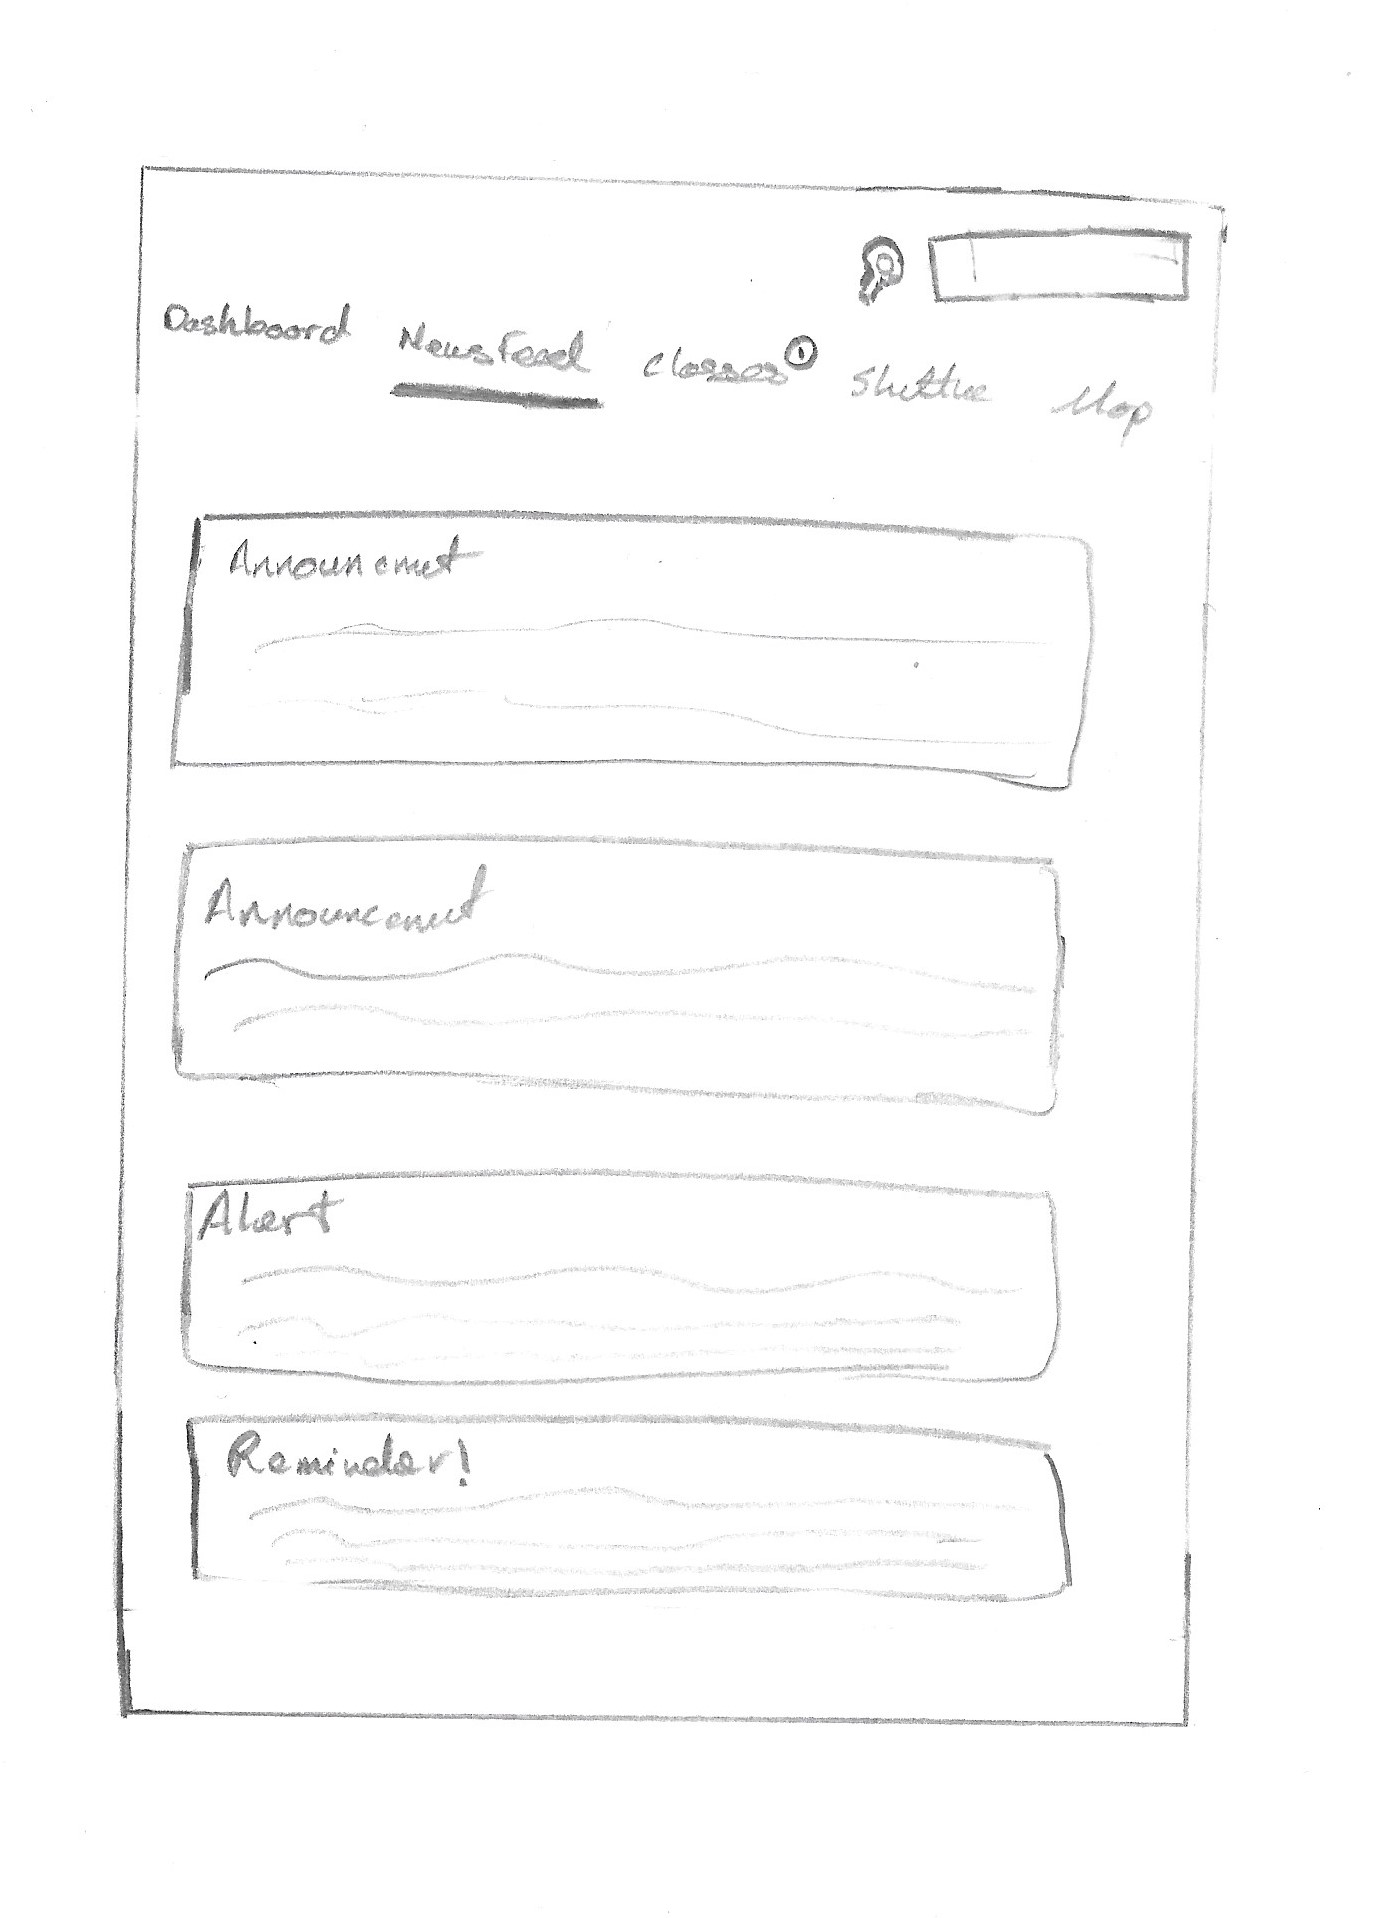 Dashboard NewsFeed Classes 1 Shuttle Map
Announcement
Announcement
Alert
Reminder!